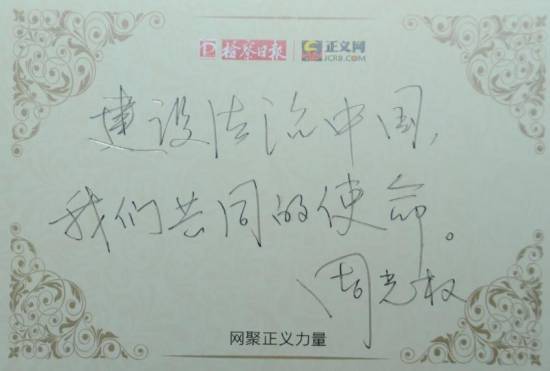 检察日报 正义网
JCRB.COM
建设法治中国，
我们共同的使命。
周光权
网聚正义力量